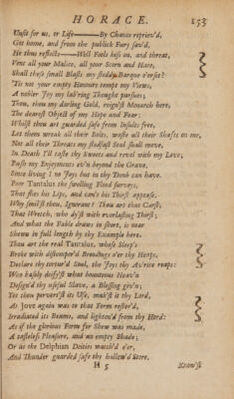 HORACE. 153
Unfit for us, or Life——By Chance repriev'd,
Got home, and from the publick Fury sav'd,
He thus reflects——Well Fools hiss on, and threat,
Vent all your Malice, all your Scorn and Hate,
Shall these small Blasts my steddy Barque o'erset?
'Tis not your empty Honours tempt my Views,
A nobler Joy my lab'ring Thought pursues;
Thou, thou my darling Gold, reign'st Monarch here,
The dearest Object of my Hope and Fear:
Whilst thou art guarded safe from Insults free,
Let them wreak all their Bolts, waste all their Shafts at me,
Not all their Threats my stedfast Soul shall move,
In Death I'll taste thy Sweets and revel with my Love;
Push my Enjoyments ev'n beyond the Grave,
Since living I no Joy but in thy Dowb can have.
Poor Tantalus the swelling Flood surveys,
That flies his Lips, and can't his Thirst appease.
Why smil'st thou, Ignorant? Thou art that Curst,
That Wretch, who dy'st with everlasting Thirst;
And what the Fable draws in short, is near
Shewn in full length by thy Example here.
Thou art the real Tantalus, whose Sleep's
Broke with distemper'd Broodings o'er thy Heaps,
Declare thy tortur'd Soul, the Joys thy Av'rice reaps:
Who basely deify'st what bounteous Heav'n
Design'd thy useful Slave, a Blessing giv'n;
Yet thou pervert'st its Use, mak'st it thy Lord,
As Jove again was to that Form restor'd,
Irradiated its Beams, and lighten'd from thy Hord:
As if the glorious Form for Shew was made,
A tasteless Pleasure, and an empty Shade;
Or as the Delphian Deities watch'd o'er,
And Thunder guarded safe thy hallow'd Store.
H 5
Know'st